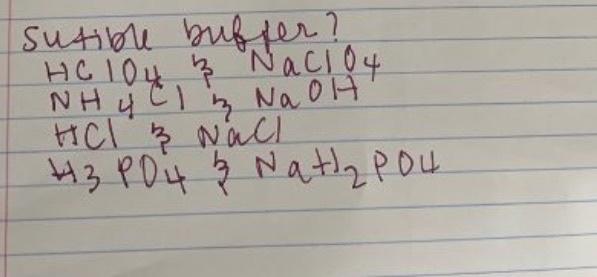 Sutible buffer?
HClO4 & NaClO4
NH4Cl & NaOH
HCl & NaCl
H3PO4 & NaH2PO4